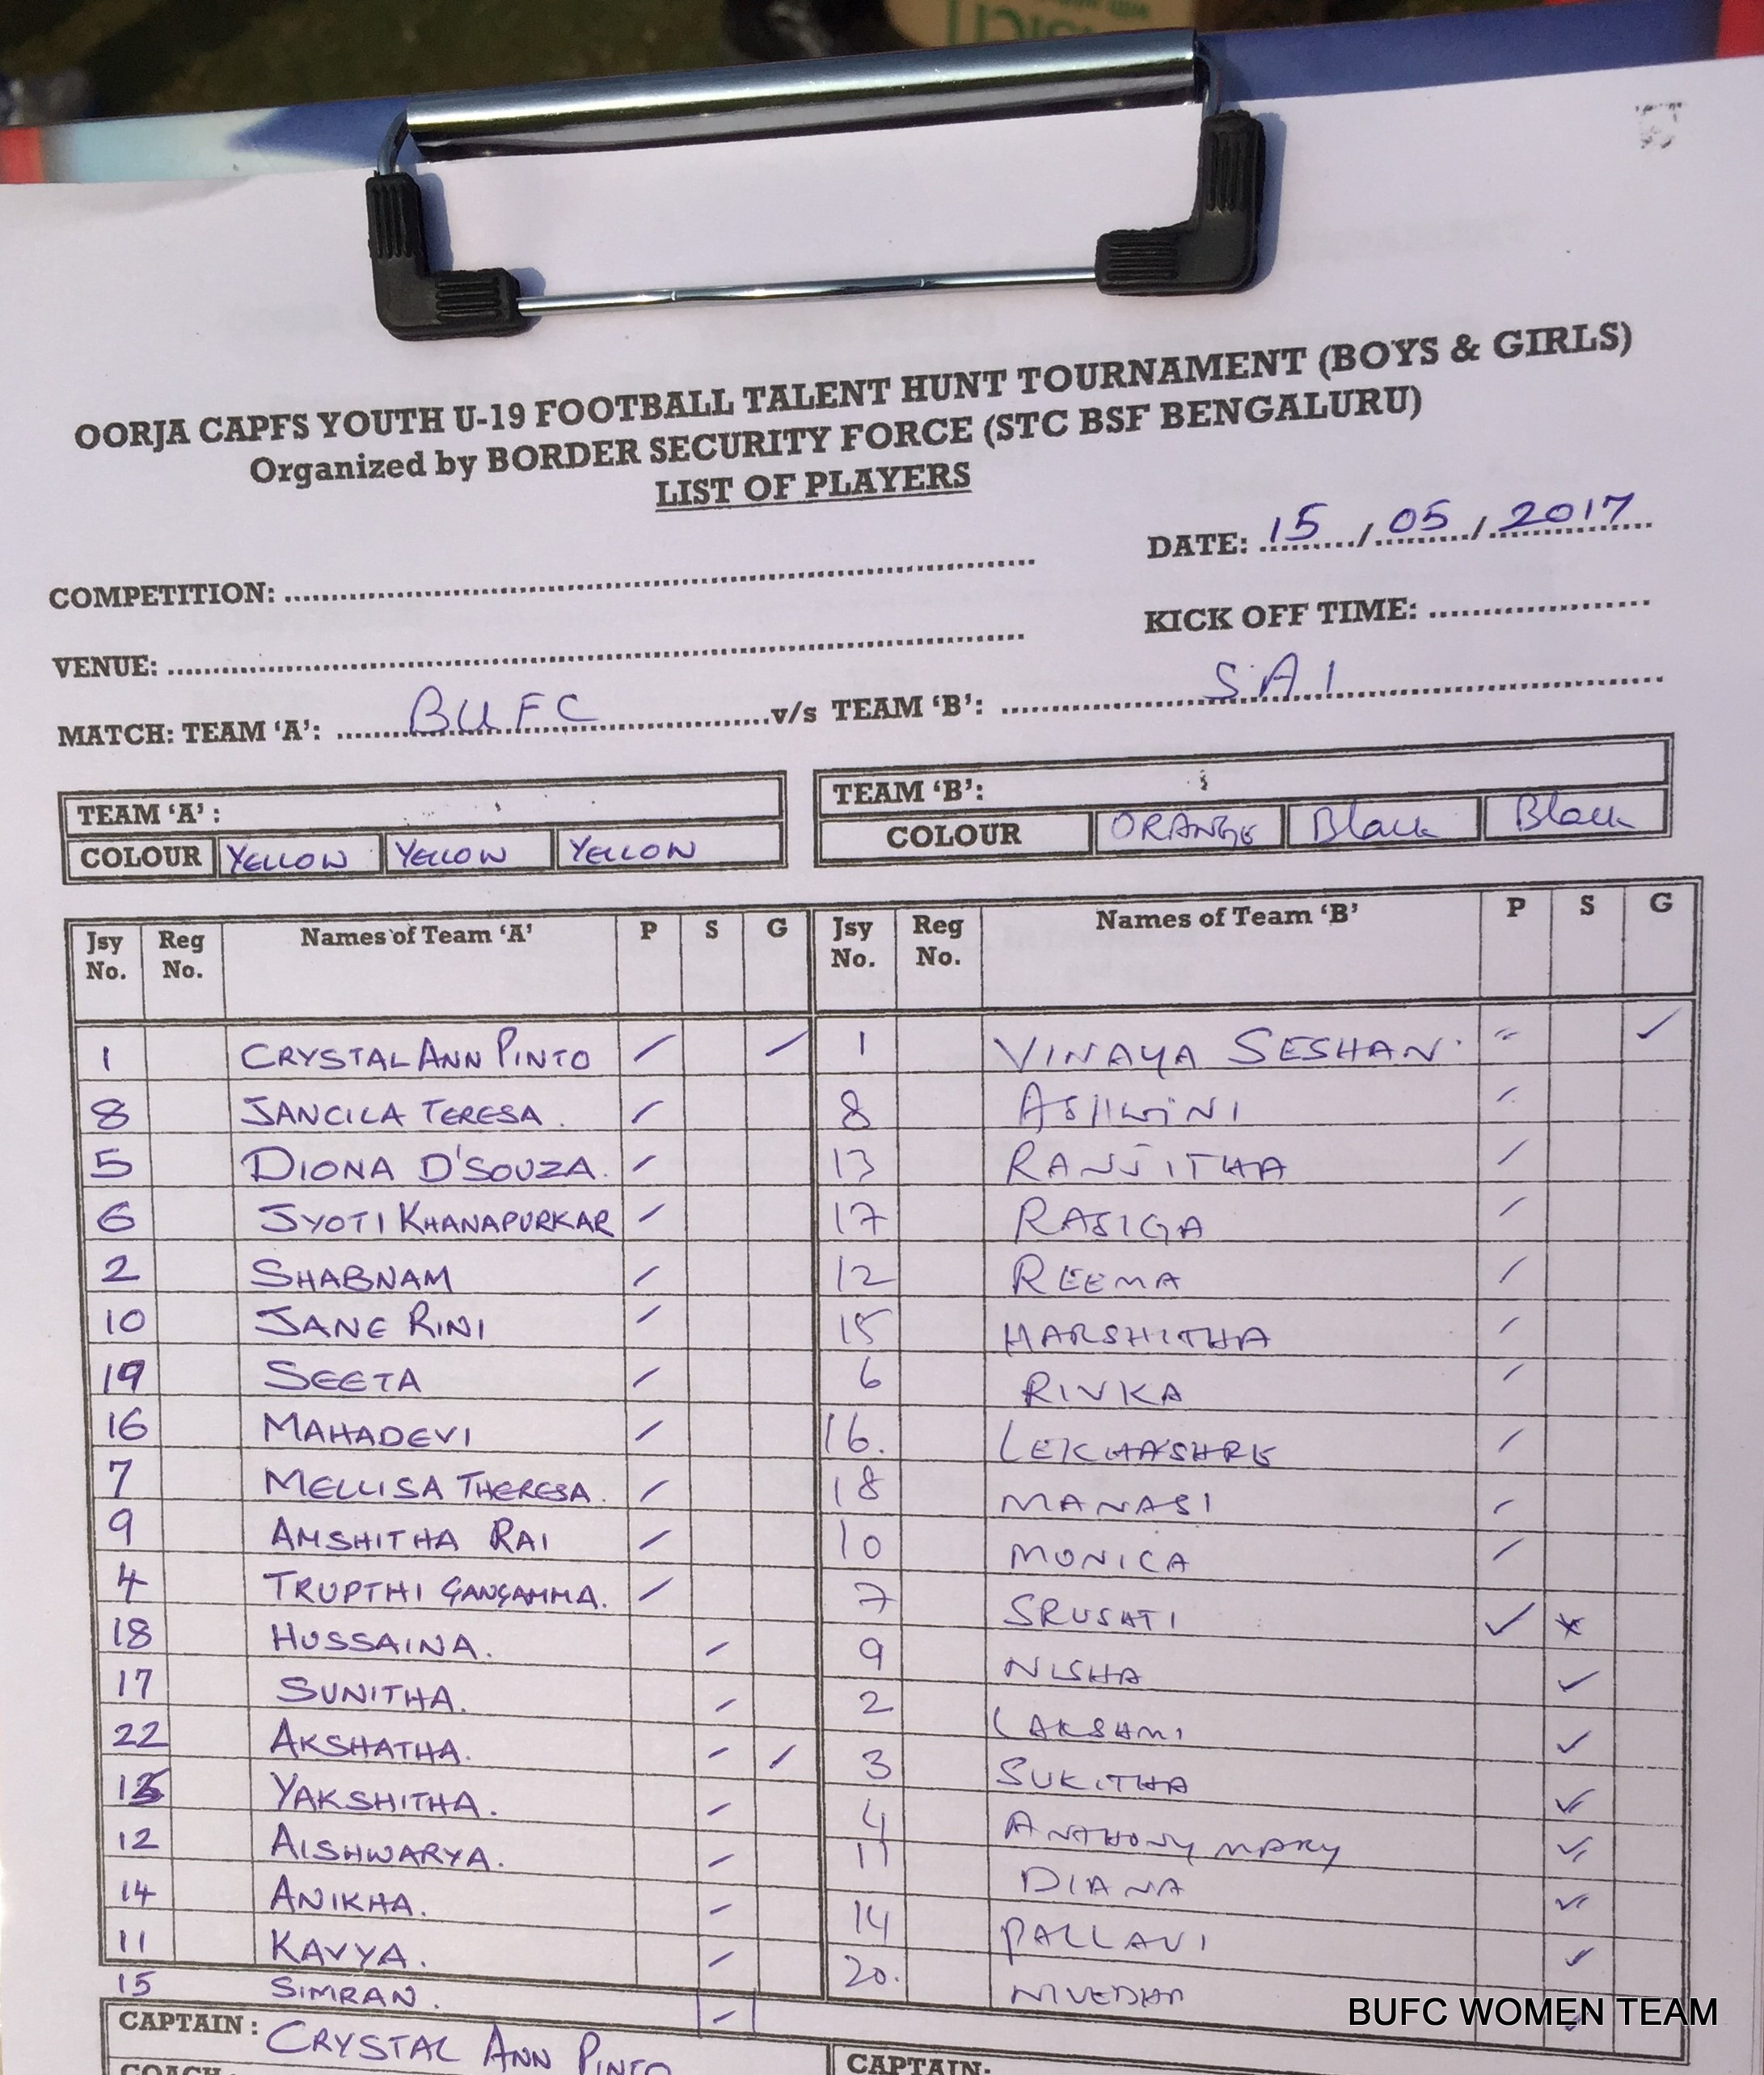 OORJA CAPFS YOUTH U-19 FOOTBALL TALENT HUNT TOURNAMENT (BOYS & GIRLS)
Organized by BORDER SECURITY FORCE (STC BSF BENGALURU)
LIST OF PLAYERS
DATE: 15/05/2017
COMPETITION:
KICK OFF TIME:
VENUE:
MATCH: TEAM ‘A’: BUFC v/s TEAM ‘B’: SAI
TEAM ‘A’ : TEAM ‘B’:
COLOUR YELLOW YELLOW YELLOW COLOUR ORANGE Black Black
Jsy No. Reg No. Names of Team ‘A’ P S G Jsy No. Reg No. Names of Team ‘B’ P S G
1 CRYSTAL ANN PINTO / / 1 VINAYA SESHAN ✓
8 JANCILA TERESA. / 8 ASHWINI /
5 DIONA D'SOUZA. / 13 RANJITHA /
6 JYOTI KHANAPURKAR / 17 RASIGA /
2 SHABNAM / 12 REEMA /
10 JANE RINI / 15 HARSHITHA /
19 SEETA / 6 RINKA /
16 MAHADEVI / 16. LEKHASHRE /
7 MELLISA THERESA. / 18 MANASI /
9 AMSHITHA RAI / 10 MONICA /
4 TRUPTHI GANGAMMA. / 7 SRUSHTI ✓
18 HUSSAINA. / 9 NISHA ✓
17 SUNITHA. / 2 LAKSHMI ✓
22 AKSHATHA. / / 3 SUKITHA ✓
YAKSHITHA. / 4 ANTHONY MARY ✓
12 AISHWARYA. / 11 DIANA ✓
14 ANIKHA. / 14 PALLAVI ✓
11 KAVYA. / 20. NIVEDHA
15 SIMRAN. /
CAPTAIN : CRYSTAL ANN PINTO CAPTAIN:
COACH
BUFC WOMEN TEAM